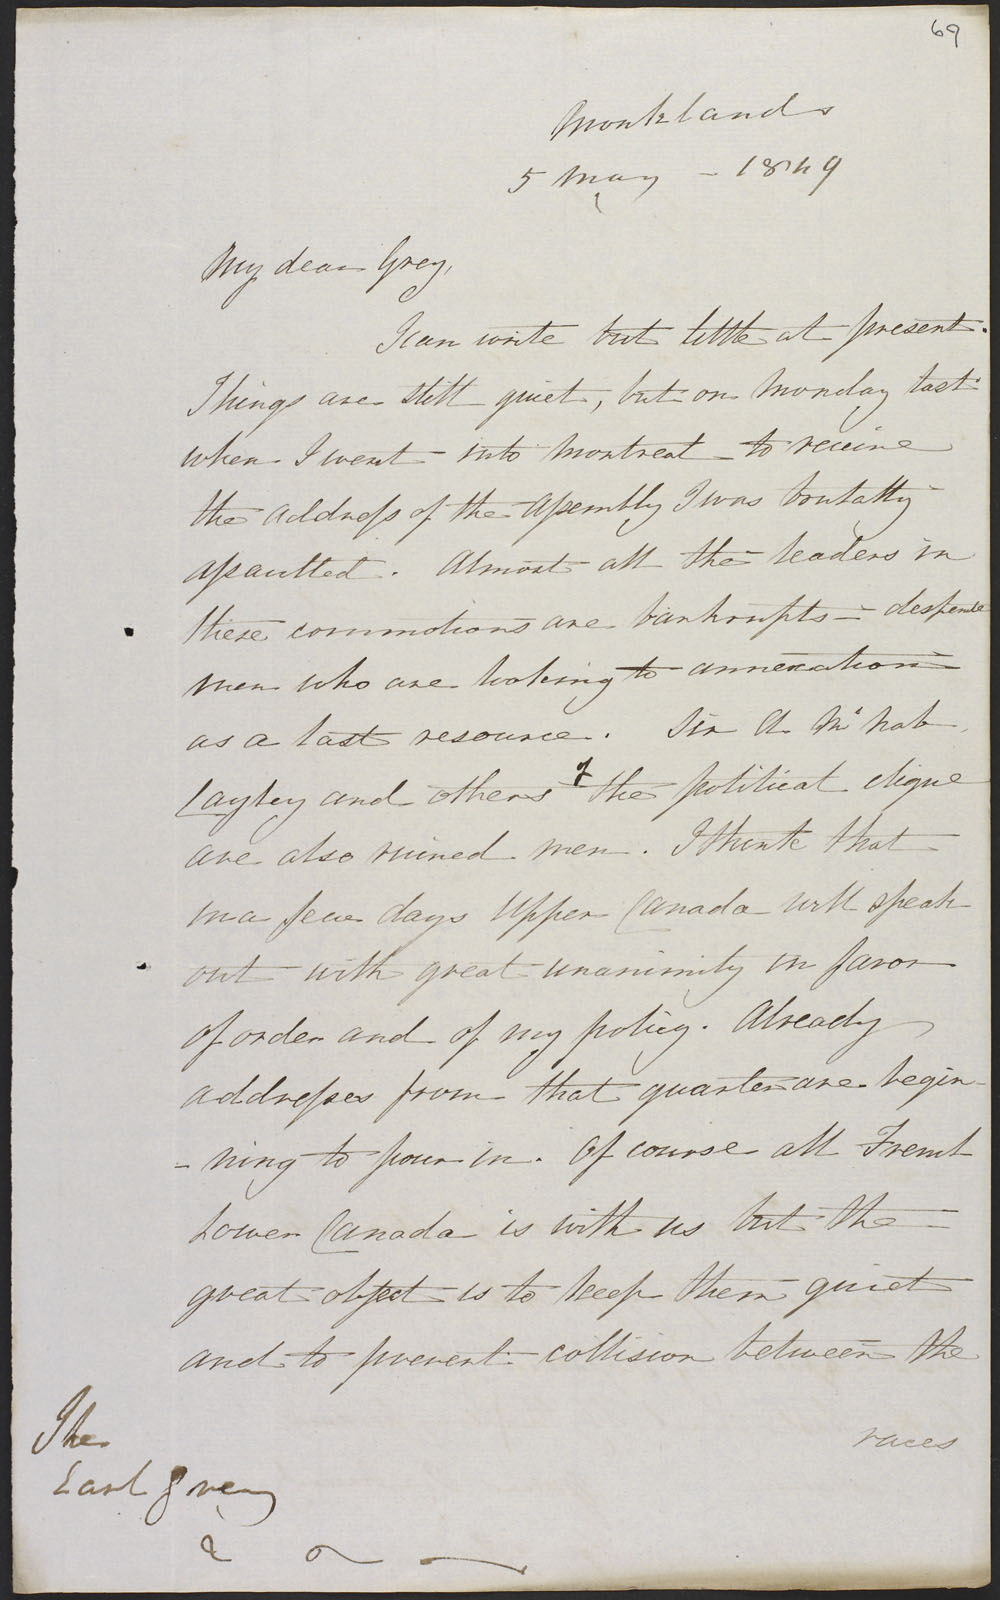 69
Monklands
5 May - 1849
My dear Grey,
I can write but little at present.
Things are still quiet, but on Monday last
when I went into Montreal to receive
the Address of the Assembly I was brutally
assaulted. Almost all the leaders in
these commotions are bankrupts - desperate
men who are looking to annexation
as a last resource. Sir A McNab
Cayley and others of the political clique
are also ruined men. I think that
in a few days Upper Canada will speak
out with great unanimity in favor
of order and of my policy. Already
addresses from that quarter are begin-
-ning to pour in. Of course all French
Lower Canada is with us but the
great object is to keep them quiet
and to prevent collision between the
races
The
Earl Grey